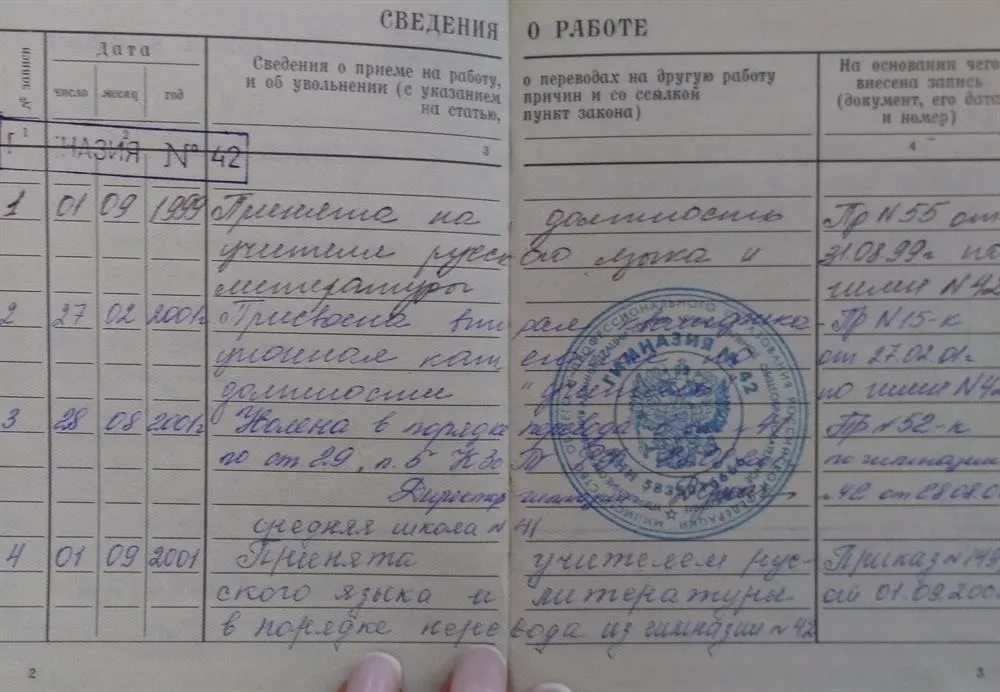 СВЕДЕНИЯ О РАБОТЕ
№ записи
Дата
число месяц год
Сведения о приеме на работу, о переводах на другую работу
и об увольнении (с указанием причин и со ссылкой
на статью, пункт закона)
На основании чего
внесена запись
(документ, его дата
и номер)
1 2 3 4
НАЗИЯ № 42
1 01 09 1999 Принята на должность Пр N 55 от
учителя русского языка и 31.08.99г по
литературы гимн N 42
2 27 02 2001г Присвоена вторая Пр N 15-к
категория по от 27.02.01г
должности "учитель" по гимн N 42
3 28 08 2001г Уволена в порядке перевода в 41 Пр N 52-к
по ст 29, п. 5 КЗоТ по гимназии
Директор гимназии N 42 от 28.08.0
ГИМНАЗИЯ № 42
средняя школа N 41
4 01 09 2001 Принята учителем рус- Приказ N 143
ского языка и литературы от 01.09.200
в порядке перевода из гимназии N 42
2
3